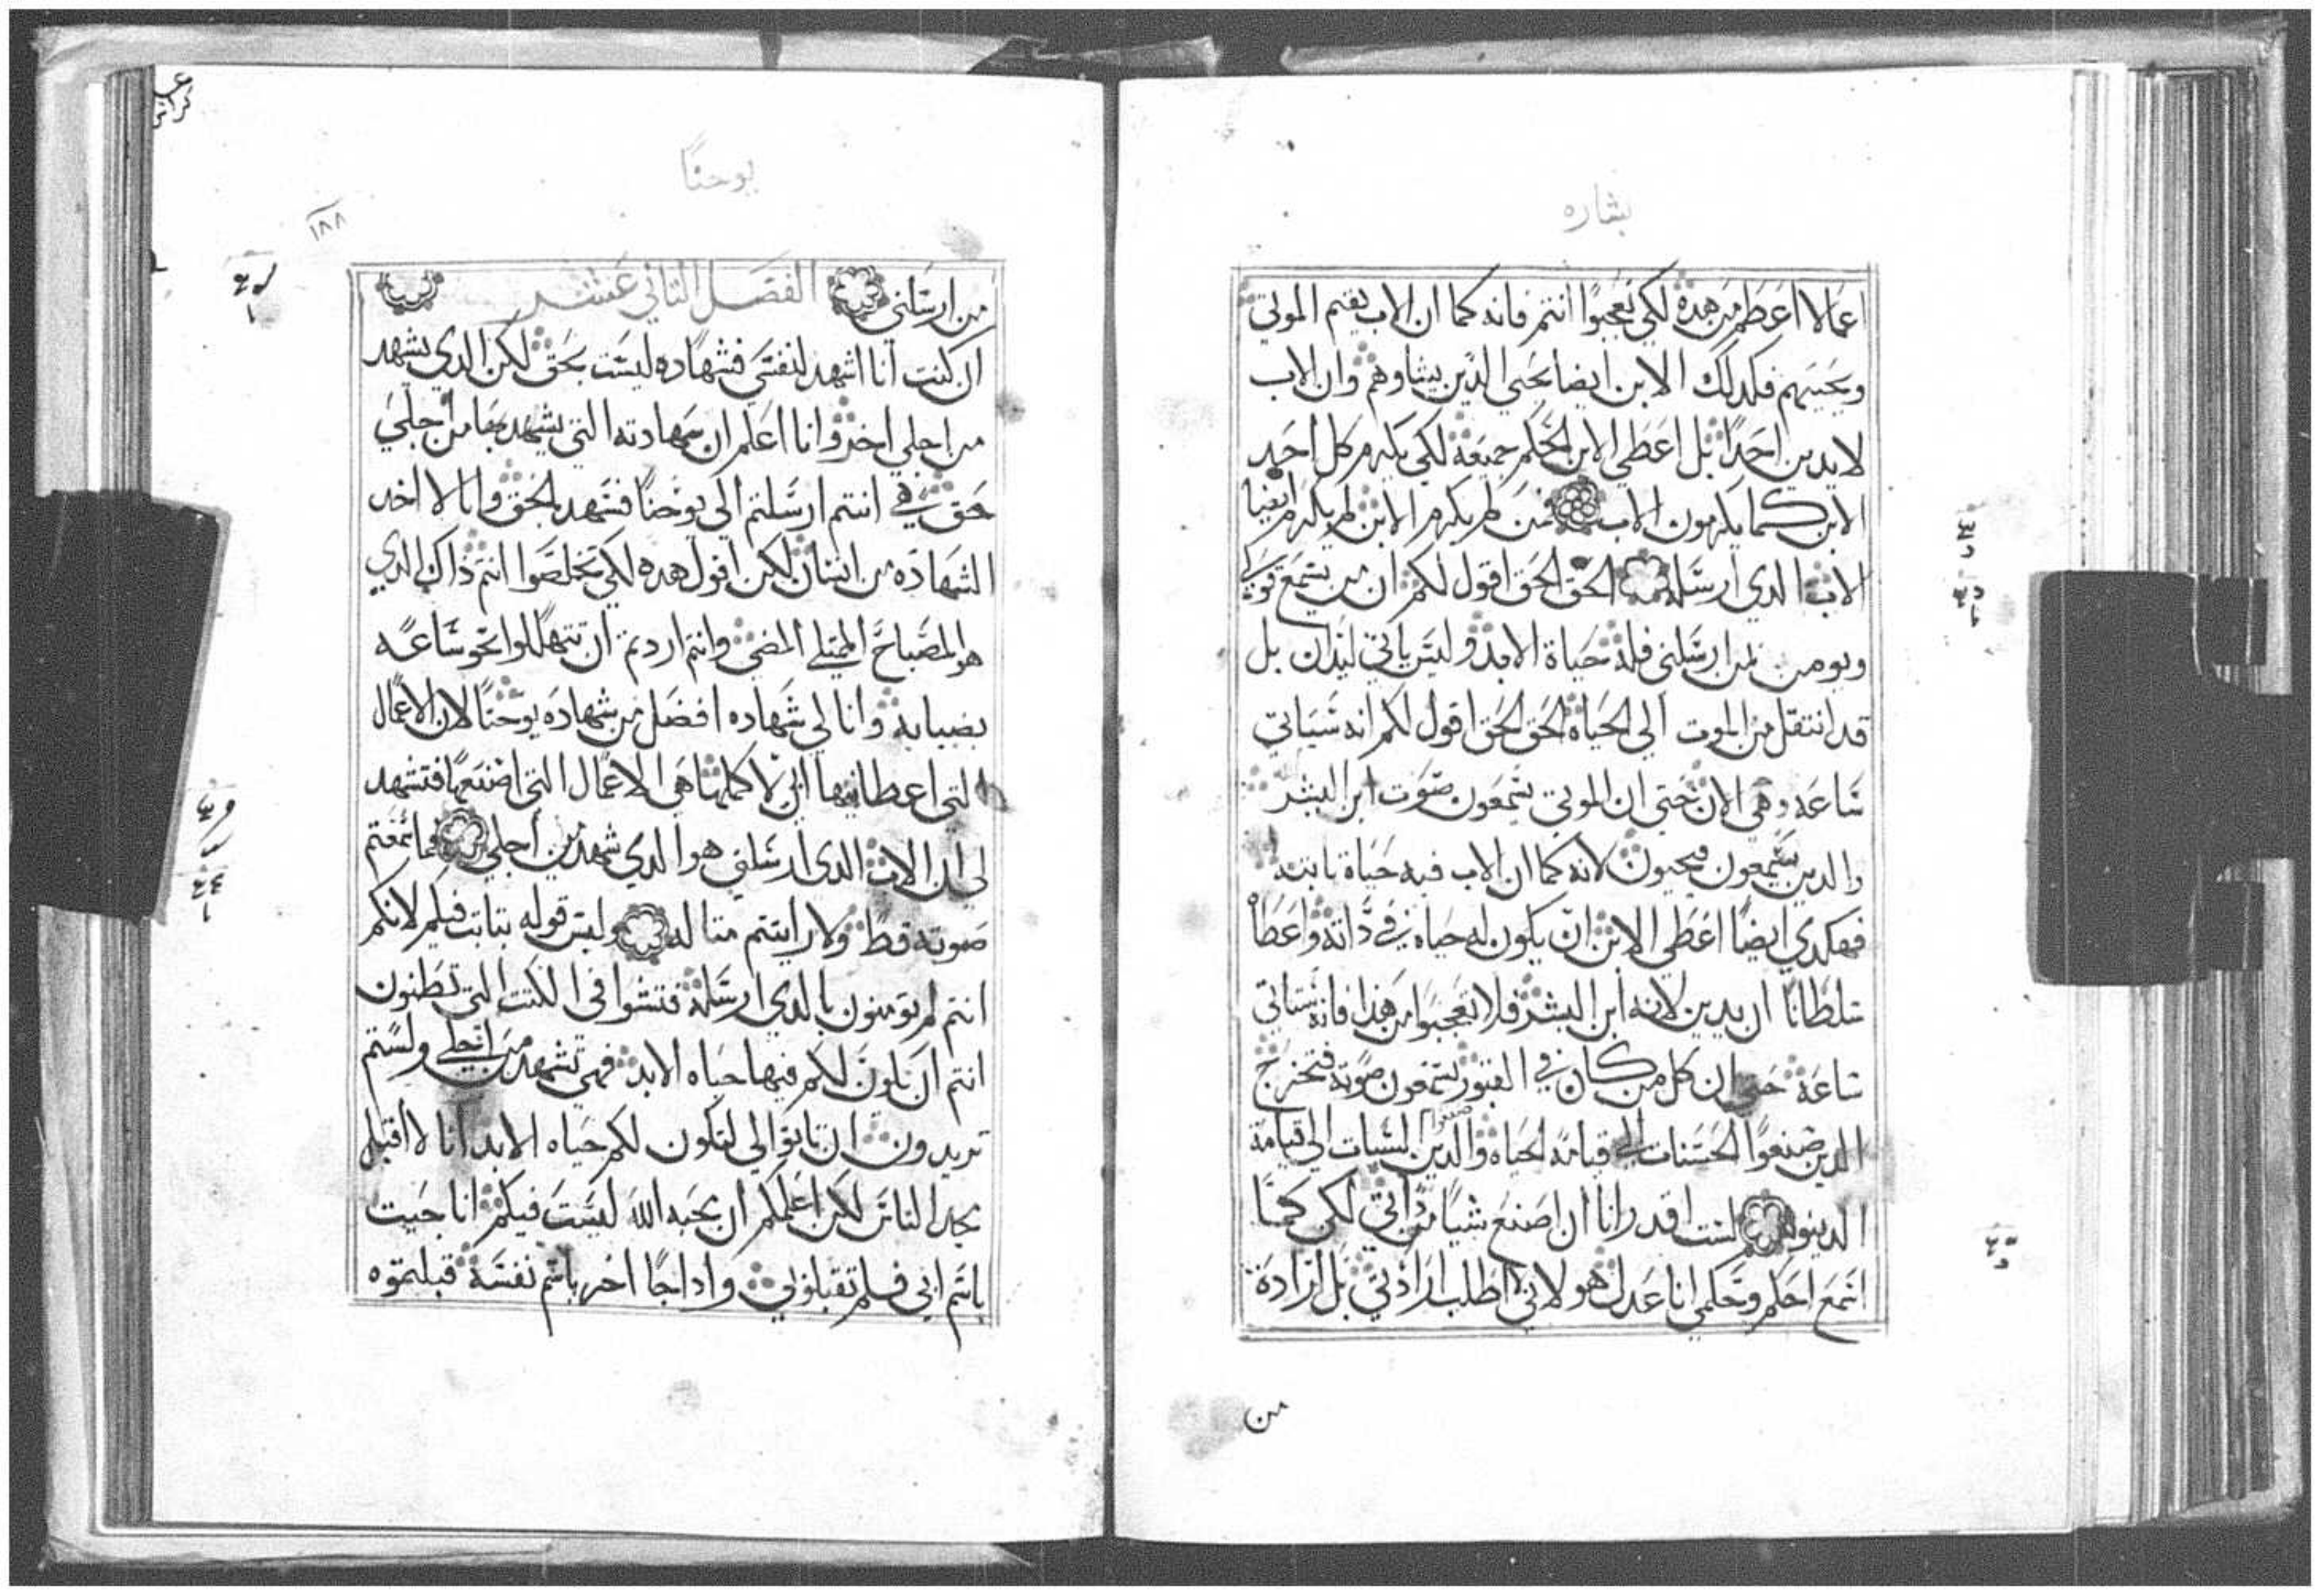 بشاره
اعمالا اعظم من هده لكي تعجبوا انتم فانه كما ان الاب يقيم الموتي
ويحييهم فكدلك الابن ايضا يحيي الدين يشاوهم وان الاب
لا يدين احدًا بل اعطي الابن الحكم جميعه لكي يكرم كل احد
الابن كما يكرمون الاب فمن لم يكرم الابن لم يكرم ايضا
الاب الدي ارسله الحق الحق اقول لكم ان من يسمع قولي
ويومن بمن ارسلني فله حياة الابد وليس ياتي ليدان بل
قد انتقل من الموت الي الحياة الحق الحق اقول لكم انه سياتي
ساعه وهي الان حتي ان الموتي يسمعون صوت ابن البشر
والدين يسمعون فيحيون لانه كما ان الاب فيه حياة تابته
فهكدي ايضًا اعطي الابن ان يكون له حياه في داته واعطاه
سلطانًا ان يدين لانه ابن البشر فلا تعجبوا من هدا فانه ستاتي
ساعة حتي ان كل من كان في القبور يسمعون صوته فتخرج
الدين صنعوا الحسنات الي قيامة الحياه والدين صنعوا السيات الي قيامة
الدينونه لست اقدر انا ان اصنع شيا من داتي لكن كما
اسمع احكم وحكمي انا عدل هو لاني لا اطلب ارادتي بل ارادة
من
يوحنا
١٨٨
من ارسلني الفصل التاني عشر
ان كنت انا اشهد لنفسي فشهادة ليست بحق لكن الدي يشهد
من اجلي اخر وانا اعلم ان شهادته التي يشهد بها من اجلي
حق هي انتم ارسلتم الي يوحنا فشهد بالحق وانا لا اخد
الشهاده من انسان لكن اقول هده لكي تخلصوا انتم داك الدي
هو المصباح الممتلي المضي وانتم اردتم ان تتهللوا نحو ساعه
بضيايه وانا لي شهاده افضل من شهادة يوحنا لان الاعمال
التي اعطانيها ابي لاكملها هي الاعمال التي اصنعها فتشهد
لي ان الاب الدي ارسلني هو الدي شهد من اجلي فما سمعتم
صوته قط ولا رايتم مثاله وليس قوله بتابت فيكم لانكم
انتم لم تومنون بالدي ارسله فتشوا في الكتب التي تظنون
انتم ان تكون لكم فيها حياه الابد فهي تشهد من اجلي ولستم
تريدون ان تاتوا الي لتكون لكم حياه الابد انا لا اقبل
مجد الناس لكن اعلمكم ان محبه الله ليست فيكم انا جيت
باسم ابي فلم تقبلوني وادا جا اخر باسم نفسه قبلتموه